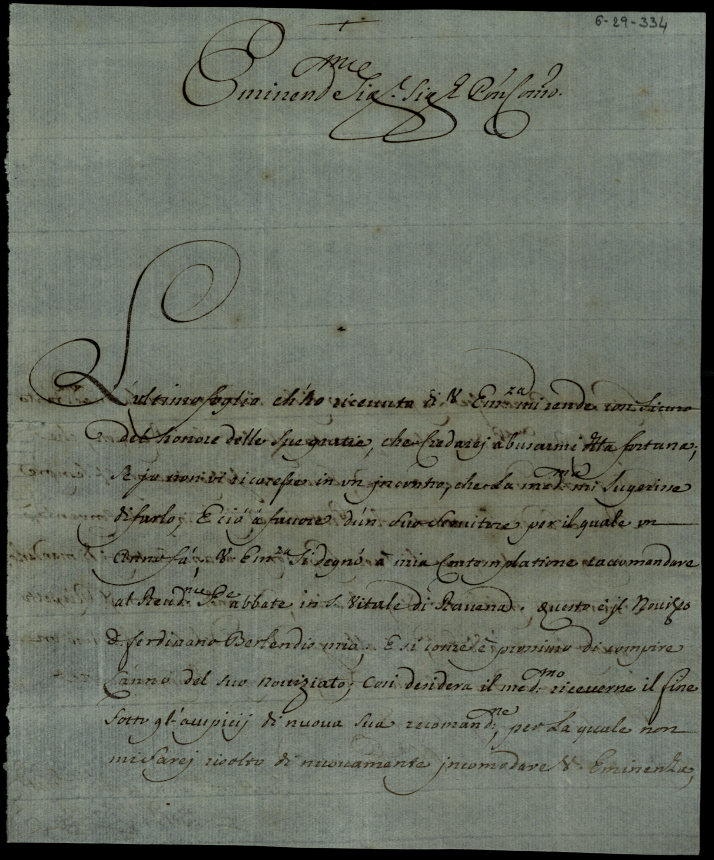 6-29-334
Eminend.me Sig.r Sig.r P̃ron Com̃o.
L'ultimo foglio ch'ho riceuuto di V. Em.za mi rende con sicuro
del honore delle sue gratie, che crederej abusarmi
fortuna,
Se io non vi ricoresse in vn jncontro, che la med.ma mi sugerisse
di farlo; E ciò à fauore d'un suo Seruitore per il quale vn
Anno fà, V. Em.za si degnò à mia Contemplatione racomandare
al Reud.mo P.re abbate in S. Vitale di Rauena, questo è il Nouizzo
D. ferdinano Berlendis mio. E si come è proximo di compire
l'anno del suo nouiziato; Cosi desidera il med.mo riceuerne il fine
Sotto gl'auspicij di nuoua sua recomand.ne, per la quale non
mi sarej risolto di nuouamente jncomodare V. Eminenza,